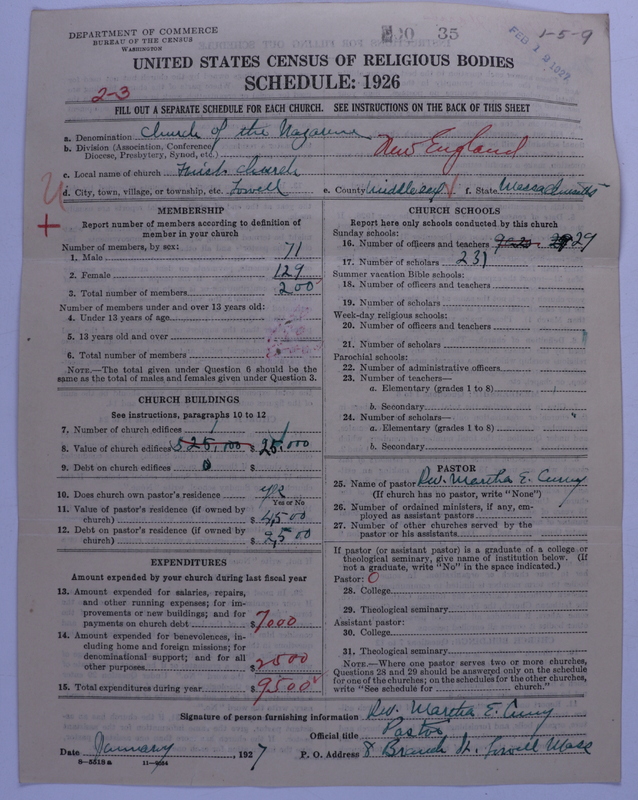 DEPARTMENT OF COMMERCE
BUREAU OF THE CENSUS
WASHINGTON
35
FEB 1 9 1927
1-5-9
UNITED STATES CENSUS OF RELIGIOUS BODIES
SCHEDULE: 1926
2-3
FILL OUT A SEPARATE SCHEDULE FOR EACH CHURCH. SEE INSTRUCTIONS ON THE BACK OF THIS SHEET
a. Denomination Church of the Nazarene
b. Division (Association, Conference, Diocese, Presbytery, Synod, etc.) New England
c. Local name of church First Church
d. City, town, village, or township, etc. Lowell e. County Middlesex f. State Massachusetts
MEMBERSHIP
Report number of members according to definition of
member in your church
Number of members, by sex:
1. Male 71
2. Female 129
3. Total number of members 200
Number of members under and over 13 years old:
4. Under 13 years of age
5. 13 years old and over
6. Total number of members
NOTE.—The total given under Question 6 should be
same as the total of males and females given under Question 3.
CHURCH BUILDINGS
See instructions, paragraphs 10 to 12
7. Number of church edifices 1
8. Value of church edifices $25,000 $25,000
9. Debt on church edifices 0 $
10. Does church own pastor's residence yes
Yes or No
11. Value of pastor's residence (if owned by
church) $4500
12. Debt on pastor's residence (if owned by
church) $2500
EXPENDITURES
Amount expended by your church during last fiscal year
13. Amount expended for salaries, repairs,
and other running expenses; for im-
provements or new buildings; and for
payments on church debt $7000
14. Amount expended for benevolences, in-
cluding home and foreign missions; for
denominational support; and for all
other purposes $2500
15. Total expenditures during year $9500
CHURCH SCHOOLS
Report here only schools conducted by this church
Sunday schools:
16. Number of officers and teachers 29
17. Number of scholars 231
Summer vacation Bible schools:
18. Number of officers and teachers
19. Number of scholars
Week-day religious schools:
20. Number of officers and teachers
21. Number of scholars
Parochial schools:
22. Number of administrative officers
23. Number of teachers—
a. Elementary (grades 1 to 8)
b. Secondary
24. Number of scholars—
a. Elementary (grades 1 to 8)
b. Secondary
PASTOR
25. Name of pastor Rev. Martha E. Curry
(If church has no pastor, write "None")
26. Number of ordained ministers, if any, em-
ployed as assistant pastors
27. Number of other churches served by the
pastor or his assistants
If pastor (or assistant pastor) is a graduate of a college or
theological seminary, give name of institution below. (If
not a graduate, write "No" in the space indicated.)
Pastor: 0
28. College
29. Theological seminary
Assistant pastor:
30. College
31. Theological seminary
NOTE.—Where one pastor serves two or more churches,
Questions 28 and 29 should be answered only on the schedule
for one of the churches; on the schedules for the other churches,
write "See schedule for church."
Signature of person furnishing information Rev. Martha E. Curry
Official title Pastor
Date January, 1927 P. O. Address 8 Branch St. Lowell Mass
8-5518a 11-9024